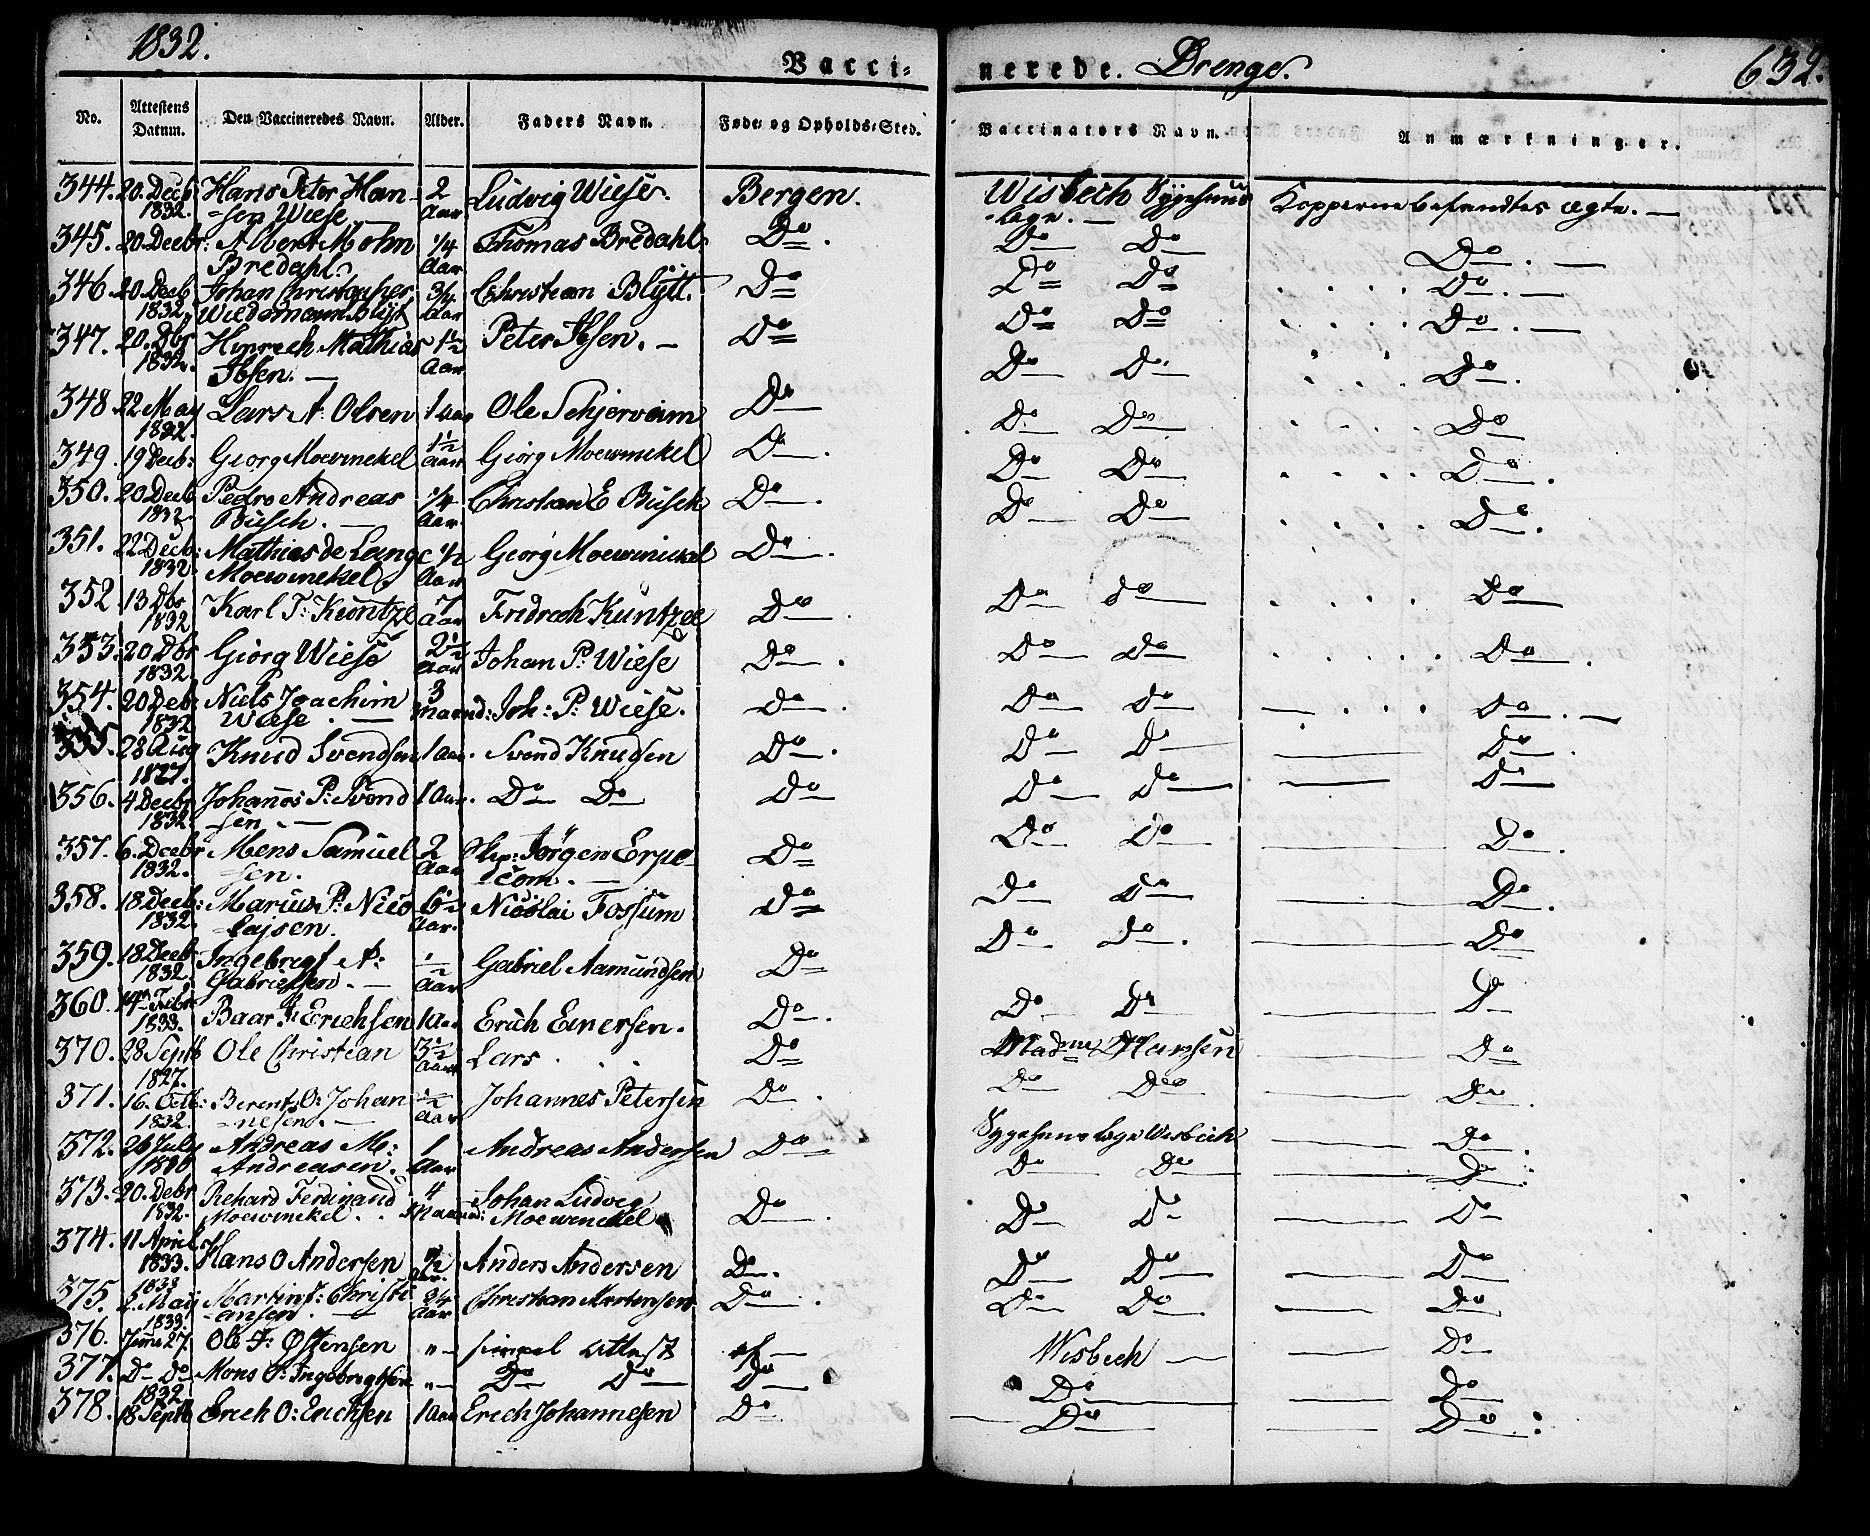 1832.
Vacci- nerede. Drenge. 632.
No. Attestens Datum. Den Vaccineredes Navn. Alder. Faders Navn. Føde- og Opholds-Sted. Vaccinators Navn. Anmærkninger.
344. 20. Decb: Hans Peter Han- 2 Ludvig Wiese. Bergen. Wisbech Sygehuus Kopperne befandtes ægte. —
1832. -sen Wiese Aar -læge. —
345. 20. Decbr: Albert Mohn 1/4 Thomas Bredahl. Do. Do Do Do. —
Bredahl. Aar
346. 20. Decb Johan Christopher 3/4 Christian Blÿtt. Do Do Do Do. —
1832. Wiedemann Blÿt Aar
347. 20. Dbr Hinrech Mathias 1½ Peter Ibsen. — Do Do Do Do. —
1832. Ibsen. — Aar
348 22 May Lars A: Olsen 1 aar Ole Schjerveim Do Do Do. Do.
1832.
349. 19 Decb: Georg Moewinckel 1½ Aar Giörg Moewinckel Do. Do. Do Do
350. 20 Decb Pedro Andreas 1/4 Christian E Büsch Do. Do Do Do.
1832. Büsch. — Aar
351. 22 Decb: Mathias de Lange 1/2 Georg Moewinickel Do. Do Do Do.
1832. Moewinckel Aar
352 13 Dbr Karl T: Küntze 7 Fridrech Küntzee Do. Do do Do
1832 Aar
353. 20 Dbr Giörg Wiese 2½ Johan P: Wiese Do. Do Do Do.
1832 Aar
354. 20 Deb: Niels Joachim 3 Joh: P: Wiese. Do. Do do Do. —
1832 Wiese. — Maaned:
355. 28 Aug Knud Svendsen 1 aar. Svend Knudsen Do. Do Do Do.
1827.
356. 4 Decb Johanes P: Svend 1 Aar. Do Do Do Do Do Do
1832. -sen. —
357. 6. Decbr Mens Samuel 2 Skp: Jörgen Erpe- Do Do Do Do.
1832. -sen. Aar com. —
358. 18. Decb: Marius P: Nico 6½ Nicolai Fossum Do Do Do Do.
1832. -lajsen. Aar.
359. 18 Decb Ingebregt A: ½ Gabriel Aamundsen Do Do Do. Do
1832. Gabrielsen. — Aar
360. 14 Febr Baar Erichsen 1 Aar Erich Einersen. Do. Do. Do Do
1833.
370. 28 Septb Ole Christian 3½ Lars Do Madme Hansen Do
1827. Aar
371. 16. Octb: Berent O: Johan ½ Johannes Petersen Do. Do Do Do.
1832. -nesen. — Aar
372. 26 July Andreas M: 1 Andreas Andersen Do Sygehuuslæge Wisbech Do.
Andreasen. Aar
373. 20. Debr Rehard Ferdinand 4 Johan Ludvig Do. Do Do Do.
1832. Moewinckel. Maaned: Moewinckel
374. 11 April Hans O Andersen ½ Anders Andersen Do. Do Do Do
1833. Aar.
375. 1833 2. Maij Martin J: Christi 3/4 Christian Martensen Do. Do Do Do
-ansen. — Aar
376. 1833. Junii 27. Ole J: Østensen "— simpel attest af — Wisbech — Do
377. Do Do Mons O: Ingebregtsen "— Do Do Do Do Do
378. 1832 18 Septb Erich O: Erichsen 1 Aar Erich Johannesen Do Do Do.